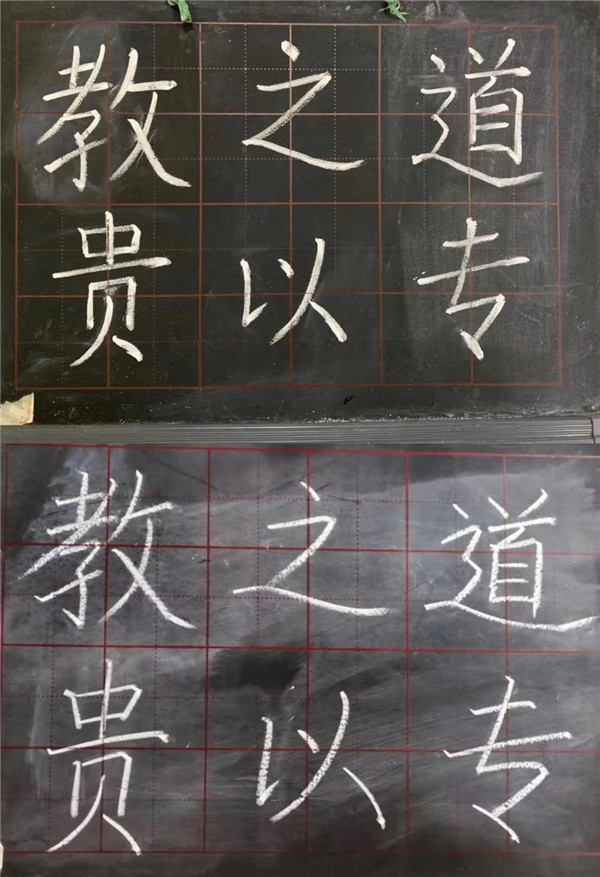 教之道
贵以专
教之道
贵以专